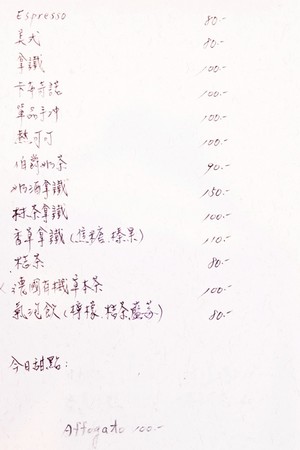 Espresso 80.-
美式 80.-
拿鐵 100.-
卡布奇諾 100.-
單品手沖 100.-
熱可可 100.-
伯爵奶茶 90.-
奶酒拿鐵 150.-
抹茶拿鐵 100.-
香草拿鐵(焦糖、榛果) 110.-
桔茶 80.-
德國有機草本茶 100.-
氣泡飲(檸檬、桔茶、藍莓) 80.-
今日甜點:
Affogato 100.-